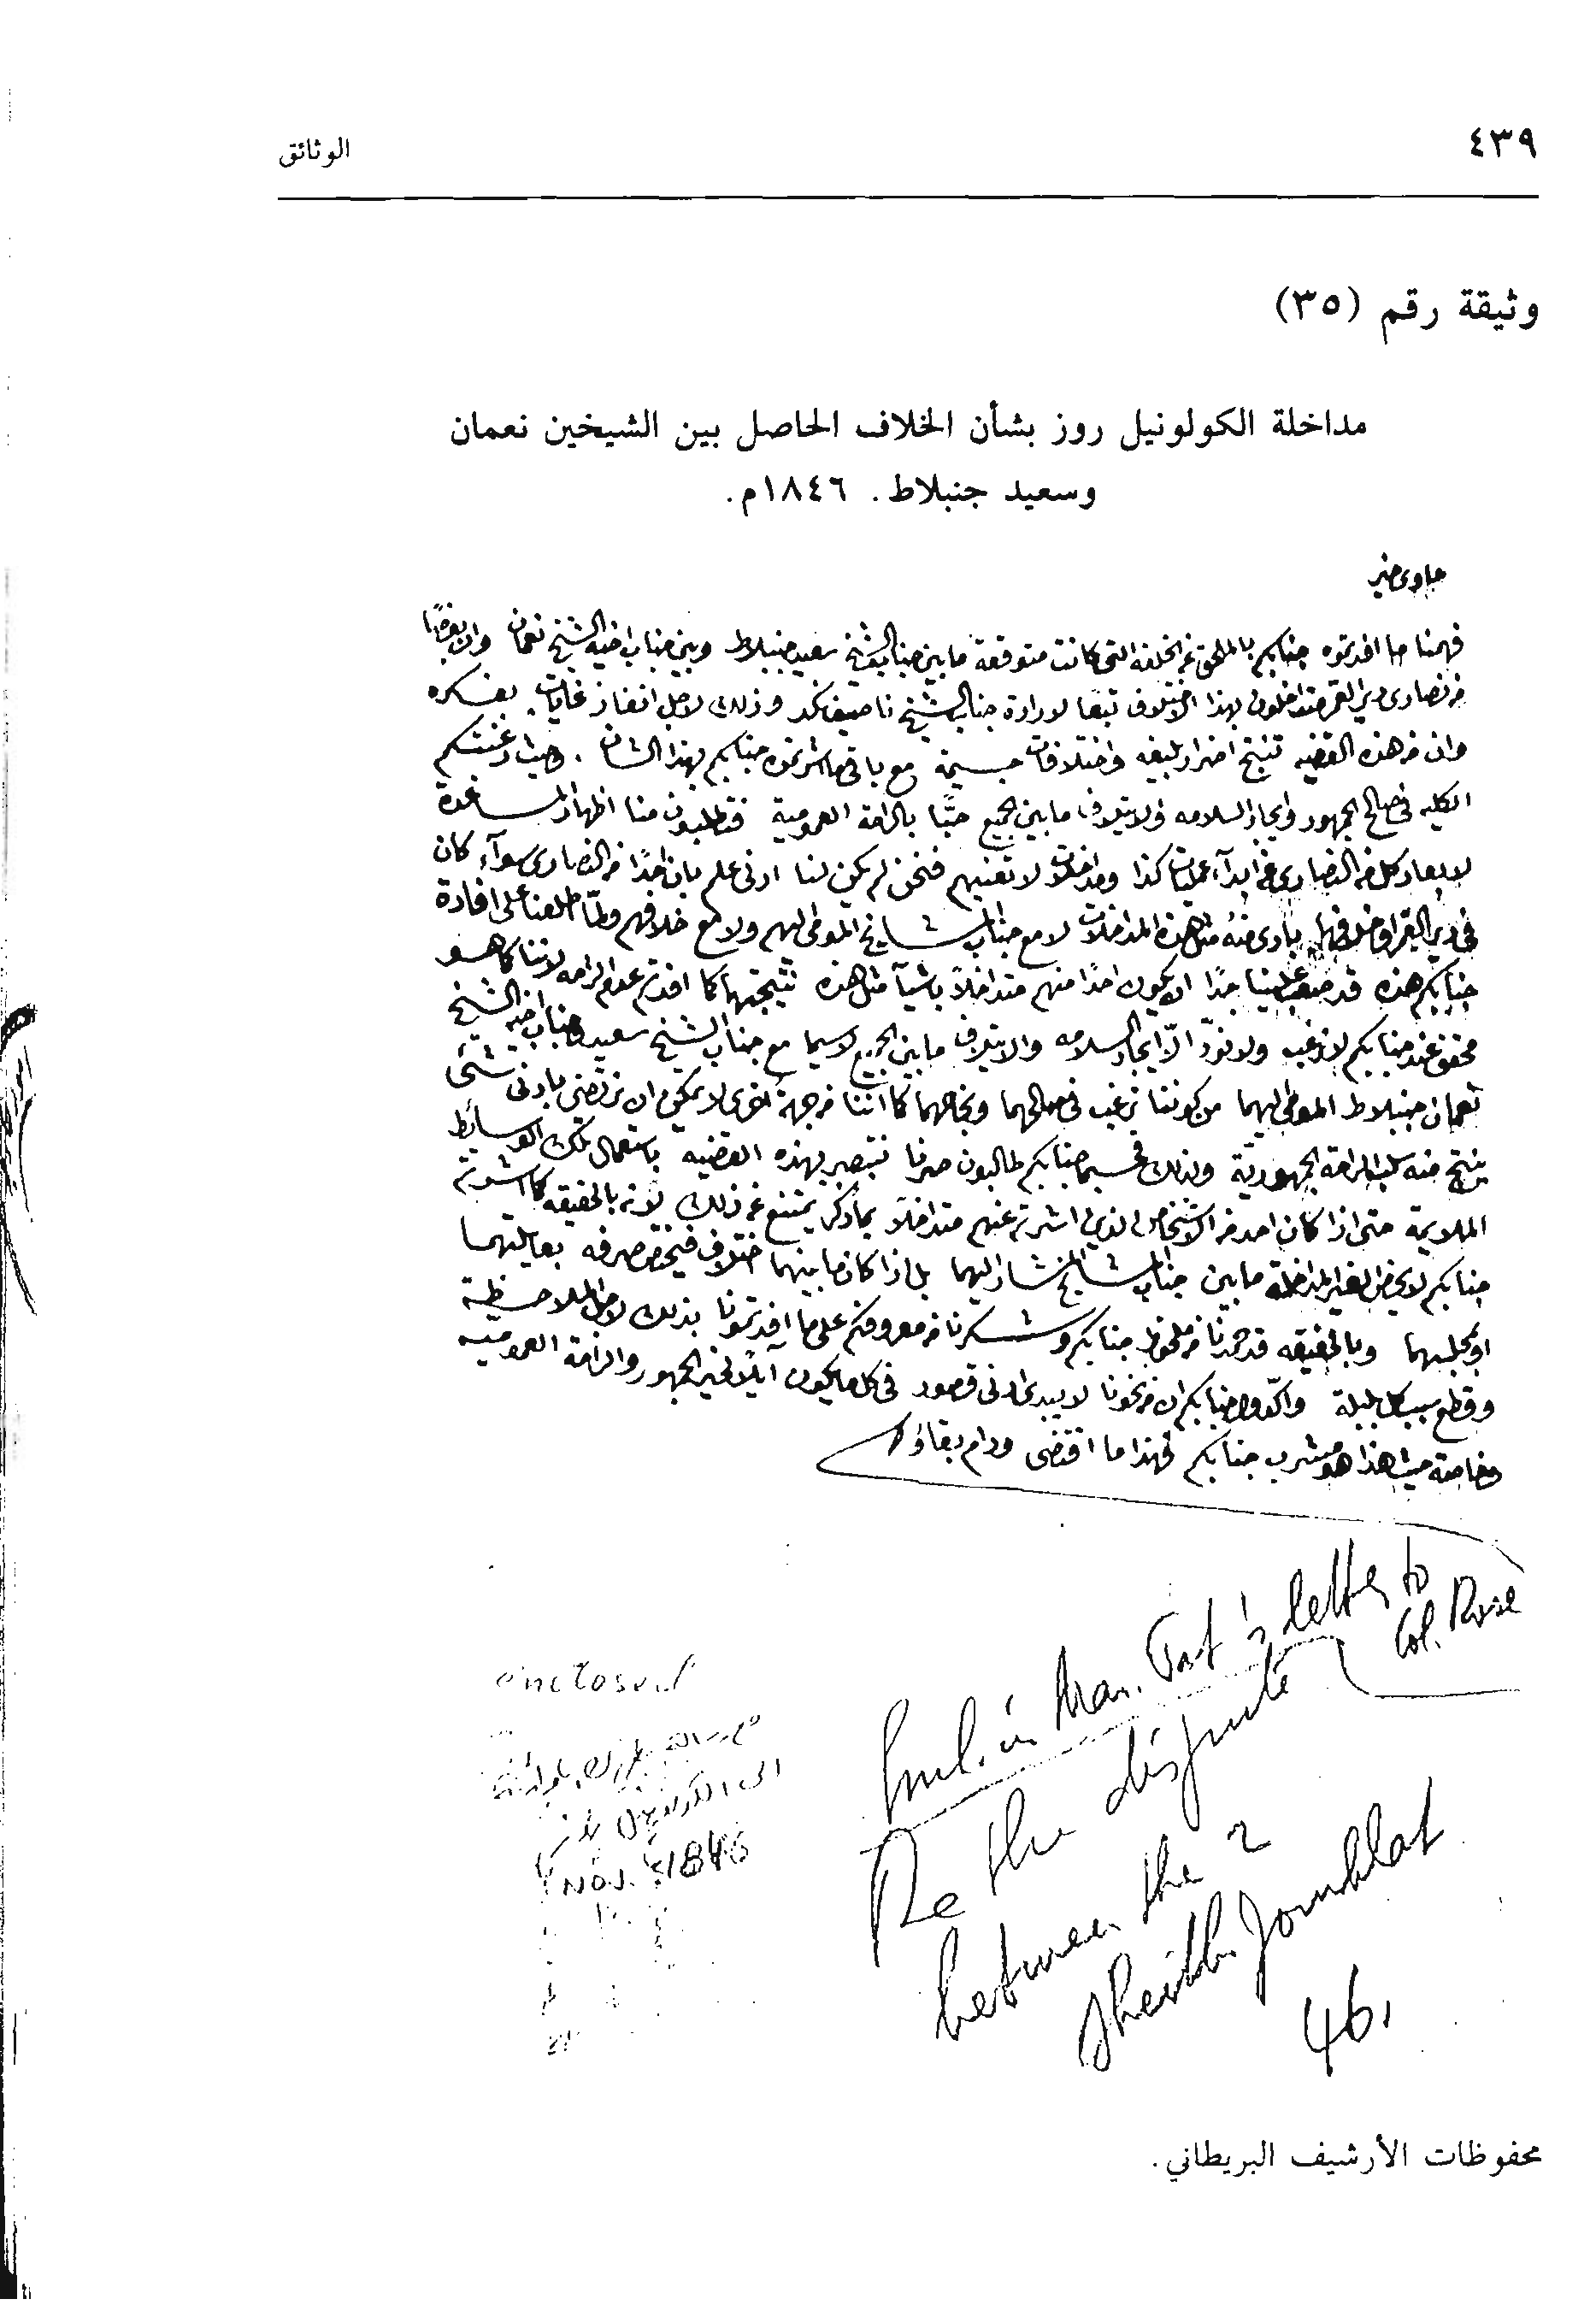 ٤٣٩
الوثائق
وثيقة رقم (٣٥)
مداخلة الكولونيل روز بشأن الخلاف الحاصل بين الشيخين نعمان
وسعيد جنبلاط . ١٨٤٦م.
فهمنا ما افدتموه جنابكم بالملحق عن الخلفه التي كانت متوقعة ما بين جناب الشيخ سعيد جنبلاط وبين جناب اخيه الشيخ نعمان وان بعضًا
من نصارى دير القمر متداخلون بهذا الاختلاف تبعًا لارادة جناب الشيخ ناصيف نكد وذلك لاجل انفاذ غايات بفكره
وان من هذه القضيه تنتج اضرار بليغه واختلافات جسيمة مع باقي ما شرتموه جنابكم بهذا الشان . وحيث رغبتكم
الكليه في صالح الجمهور وايجاد السلامه والايتلاف ما بين الجميع حبًا بالراحة العمومية فتطلبون منا اظهار المساعدة
لابعاد كل من النصارى عن ابدآء عمليات كذا ومداخلات لا تعنيهم فنحن لم يكن لنا ادنى علم بان احدًا من النصارى سوآء كان
في دير القمر او خلافها بادى منه مثل هذه المداخلات لا مع جناب المشايخ المومى اليهم ولا مع خلافهم ولمّا اطلعنا على افادة
جنابكم هذه قد صعب علينا جدًا ان يكون احدًا منهم متداخلاً باشيآ مثل هذه نتيجتها كما افدتم عدم الراحه لاننا كما هو
محقق عند جنابكم لا نرغب ولا نودّ الّا ايجاد السلامه والايتلاف ما بين الجميع لا سيما مع جناب الشيخ سعيد وجناب اخيه الشيخ
نعمان جنبلاط المومى اليهما من كوننا نرغب في صالحهما ونجاحهما كما اننا من جهة اخرى لا يمكن ان نرتضي بادنى شيء
ينتج منه سلب الراحة الجمهوريّة ولذلك جنابكم طالبون صرنا نتبصر بهذه القضيه باستعمال تلك الوسايط
الملايمة حتى اذا كان احد من الاشخاص الذين اشرتم عنهم متداخلاً بما ذكر يمتنع عن ذلك لانه بالحقيقه كما اشرتم
جنابكم لا يخص الغير المداخلة ما بين جناب المشايخ المشار اليهما بل اذا كان ما بينهما اختلاف فيختص صرفه بعايلتهما
او بمحلهما وبالحقيقه قد جنابكم وشكرنا معروفكم على ما افدتمونا بذلك لاجل الملاحظة
وقطع سبب كل بلبلة واكّدوا جنابكم ان من نحونا لا يبدى ادنى قصور في كل ما يكون آيلاً لخير الجمهور والراحة العمومية
وخاصة حيث هذا هو مشرب جنابكم فهذا ما اقتضى ودام بقاؤكم
Encl. in Mar. Pat's letter to
Col. Rose
Re the dispute
between the 2
Sheikhs Joumblat
46.
enclosed
Nov. 1846
محفوظات الأرشيف البريطاني.